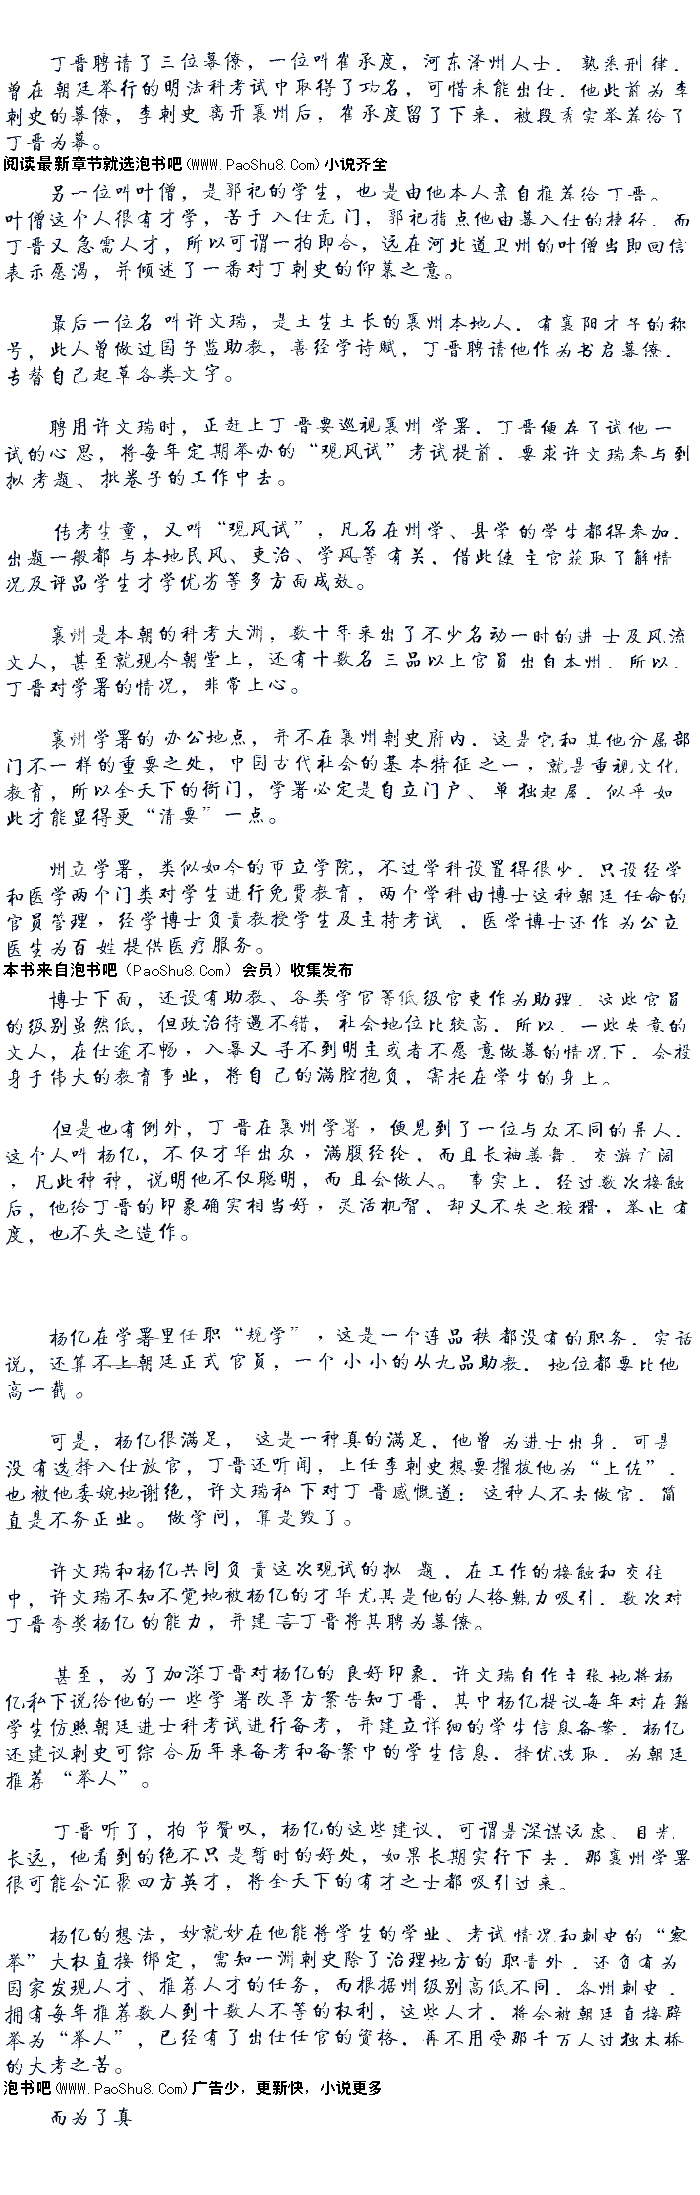 丁晋聘请了三位幕僚，一位叫崔承度，河东泽州人士．熟悉刑律．
曾在朝廷举行的明法科考试中取得了功名，可惜未能出仕．他此前为李
刺史的幕僚，李刺史离开襄州后，崔承度留了下来．被段秀实举荐给了
丁晋为幕。
阅读最新章节就选泡书吧(WWW.PaoShu8.Com)小说齐全
另一位叫叶僧，是郭祀的学生，也是由他本人亲自推荐给丁晋。
叶僧这个人很有才学，苦于入仕无门．郭祀指点他由幕入仕的捷径．而
丁晋又急需人才，所以可谓一拍即合，远在河北道卫州的叶僧当即回信
表示愿渴，并倾述了一番对丁刺史的仰慕之意。
最后一位名叫许文瑞，是土生土长的襄州本地人．有襄阳才子的称
号，此人曾做过国子监助教，善经学诗赋，丁晋聘请他作为书启幕僚．
专替自己起草各类文字。
聘用许文瑞时，正赶上丁晋要巡视襄州学署．丁晋便存了试他一
试的心思，将每年定期举办的“观风试”考试提前．要求许文瑞参与到
拟考题、批卷子的工作中去。
传考生童，又叫“观风试”，凡名在州学、县学的学生都得参加．
出题一般都与本地民风、吏治、学风等有关．借此使主官获取了解情
况及评品学生才学优劣等多方面成效。
襄州是本朝的科考大洲，数十年来出了不少名动一时的进士及风流
文人，甚至就现今朝堂上，还有十数名三品以上官员出自本州．所以．
丁晋对学署的情况，非常上心。
襄州学署的办公地点，并不在襄州刺史府内．这是它和其他分属部
门不一样的重要之处，中国古代社会的基本特征之一，就是重视文化
教育，所以全天下的衙门，学署必定是自立门户、单独起屋．似乎如
此才能显得更“清要”一点。
州立学署，类似如今的市立学院，不过学科设置得很少．只设经学
和医学两个门类对学生进行免费教育，两个学科由博士这种朝廷任命的
官员管理，经学博士负责教授学生及主持考试，医学博士还作为公立
医生为百姓提供医疗服务。
本书来自泡书吧（PaoShu8.Com）会员）收集发布
博士下面，还设有助教、各类学官等低级官吏作为助理．这些官员
的级别虽然低，但政治待遇不错，社会地位比较高．所以．一些失意的
文人，在仕途不畅，入幕又寻不到明主或者不愿意做幕的情况下．会投
身于伟大的教育事业，将自己的满腔抱负，寄托在学生的身上。
但是也有例外，丁晋在襄州学署，便见到了一位与众不同的异人．
这个人叫杨亿，不仅才华出众，满腹经纶．而且长袖善舞．交游广阔
，凡此种种，说明他不仅聪明，而且会做人。事实上．经过数次接触
后，他给丁晋的印象确实相当好，灵活机智．却又不失之狡猾，举止有
度，也不失之造作。
杨亿在学署里任职“规学”，这是一个连品秩都没有的职务．实话
说，还算不上朝廷正式官员，一个小小的从九品助教．地位都要比他
高一截。
可是，杨亿很满足，这是一种真的满足．他曾为进士出身．可是
没有选择入仕放官，丁晋还听闻，上任李刺史想要擢拔他为“上佐”．
也被他委婉地谢绝，许文瑞私下对丁晋感慨道：这种人不去做官．简
直是不务正业。做学问，算是毁了。
许文瑞和杨亿共同负责这次观试的拟题．在工作的接触和交往
中，许文瑞不知不觉地被杨亿的才华尤其是他的人格魅力吸引．数次对
丁晋夸奖杨亿的能力，并建言丁晋将其聘为幕僚。
甚至，为了加深丁晋对杨亿的良好印象．许文瑞自作主张地将杨
亿私下说给他的一些学署改革方案告知丁晋．其中杨亿提议每年对在籍
学生仿照朝廷进士科考试进行备考，并建立详细的学生信息备案．杨亿
还建议刺史可综合历年来备考和备案中的学生信息．择优选取．为朝廷
推荐“举人”。
丁晋听了，拍节赞叹，杨亿的这些建议．可谓是深谋远虑、目光
长远，他看到的绝不只是暂时的好处，如果长期实行下去．那襄州学署
很可能会汇聚四方英才，将全天下的有才之士都吸引过来。
杨亿的想法，妙就妙在他能将学生的学业、考试情况和刺史的“察
举”大权直接绑定，需知一洲刺史除了治理地方的职责外．还负有为
国家发现人才、推荐人才的任务，而根据州级别高低不同．各州刺史．
拥有每年推荐数人到十数人不等的权利，这些人才．将会被朝廷直接辟
举为“举人”，已经有了出仕任官的资格．再不用受那千万人过独木桥
的大考之苦。
泡书吧(WWW.PaoShu8.Com)广告少，更新快，小说更多
而为了真